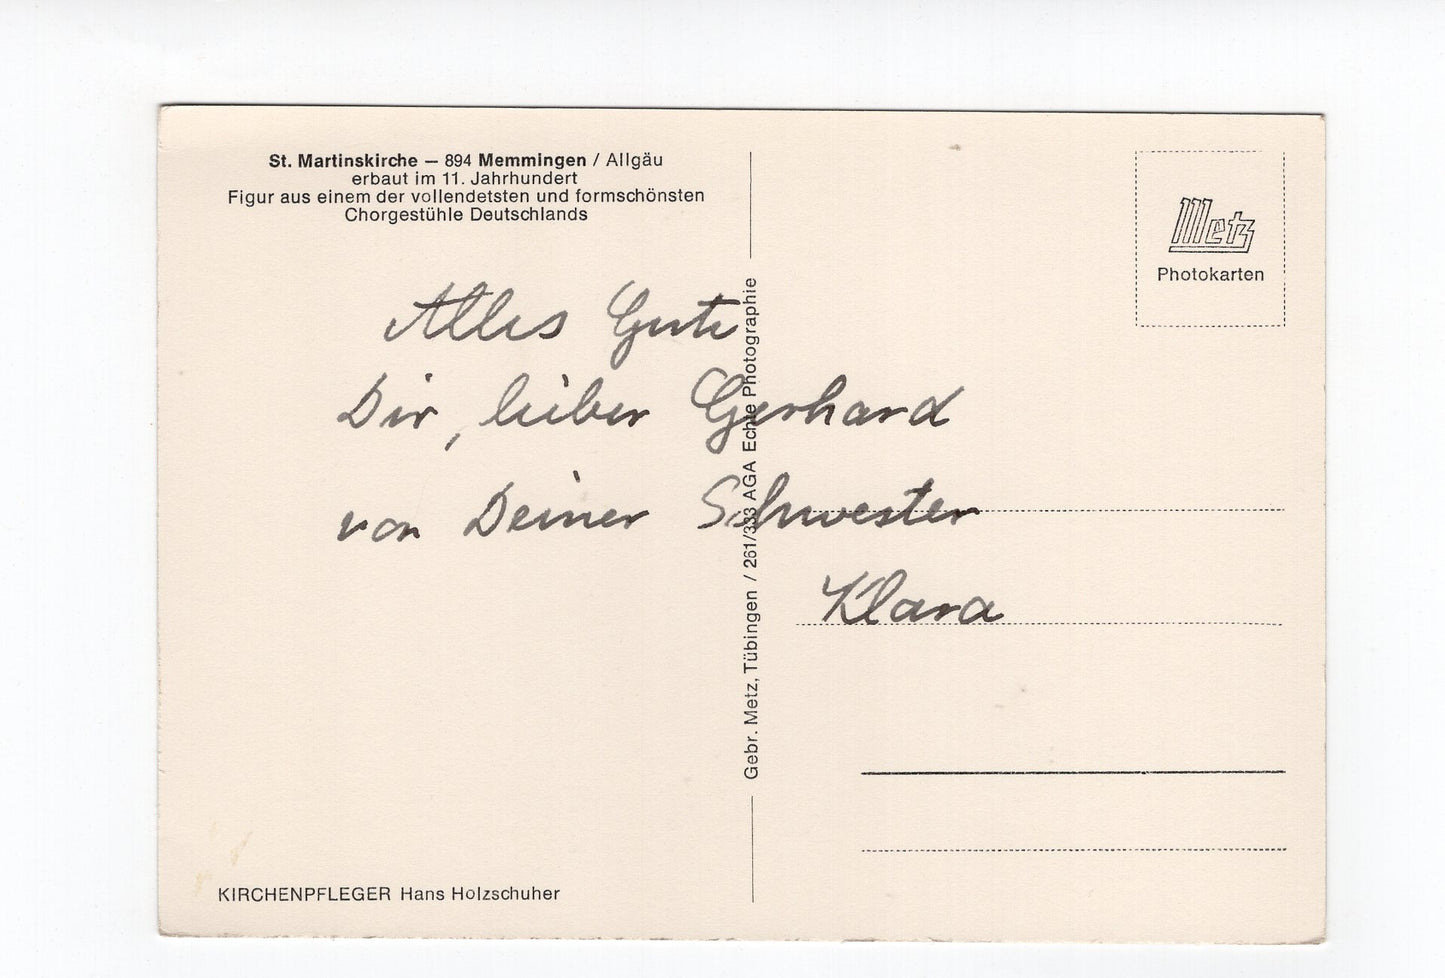 St. Martinskirche — 894 Memmingen / Allgäu
erbaut im 11. Jahrhundert
Figur aus einem der vollendetsten und formschönsten
Chorgestühle Deutschlands
Metz
Photokarten
Alles Gute
Dir, lieber Gerhard
von Deiner Schwester
Klara
Gebr. Metz, Tübingen / 261/333 AGA Echte Photographie
KIRCHENPFLEGER Hans Holzschuher